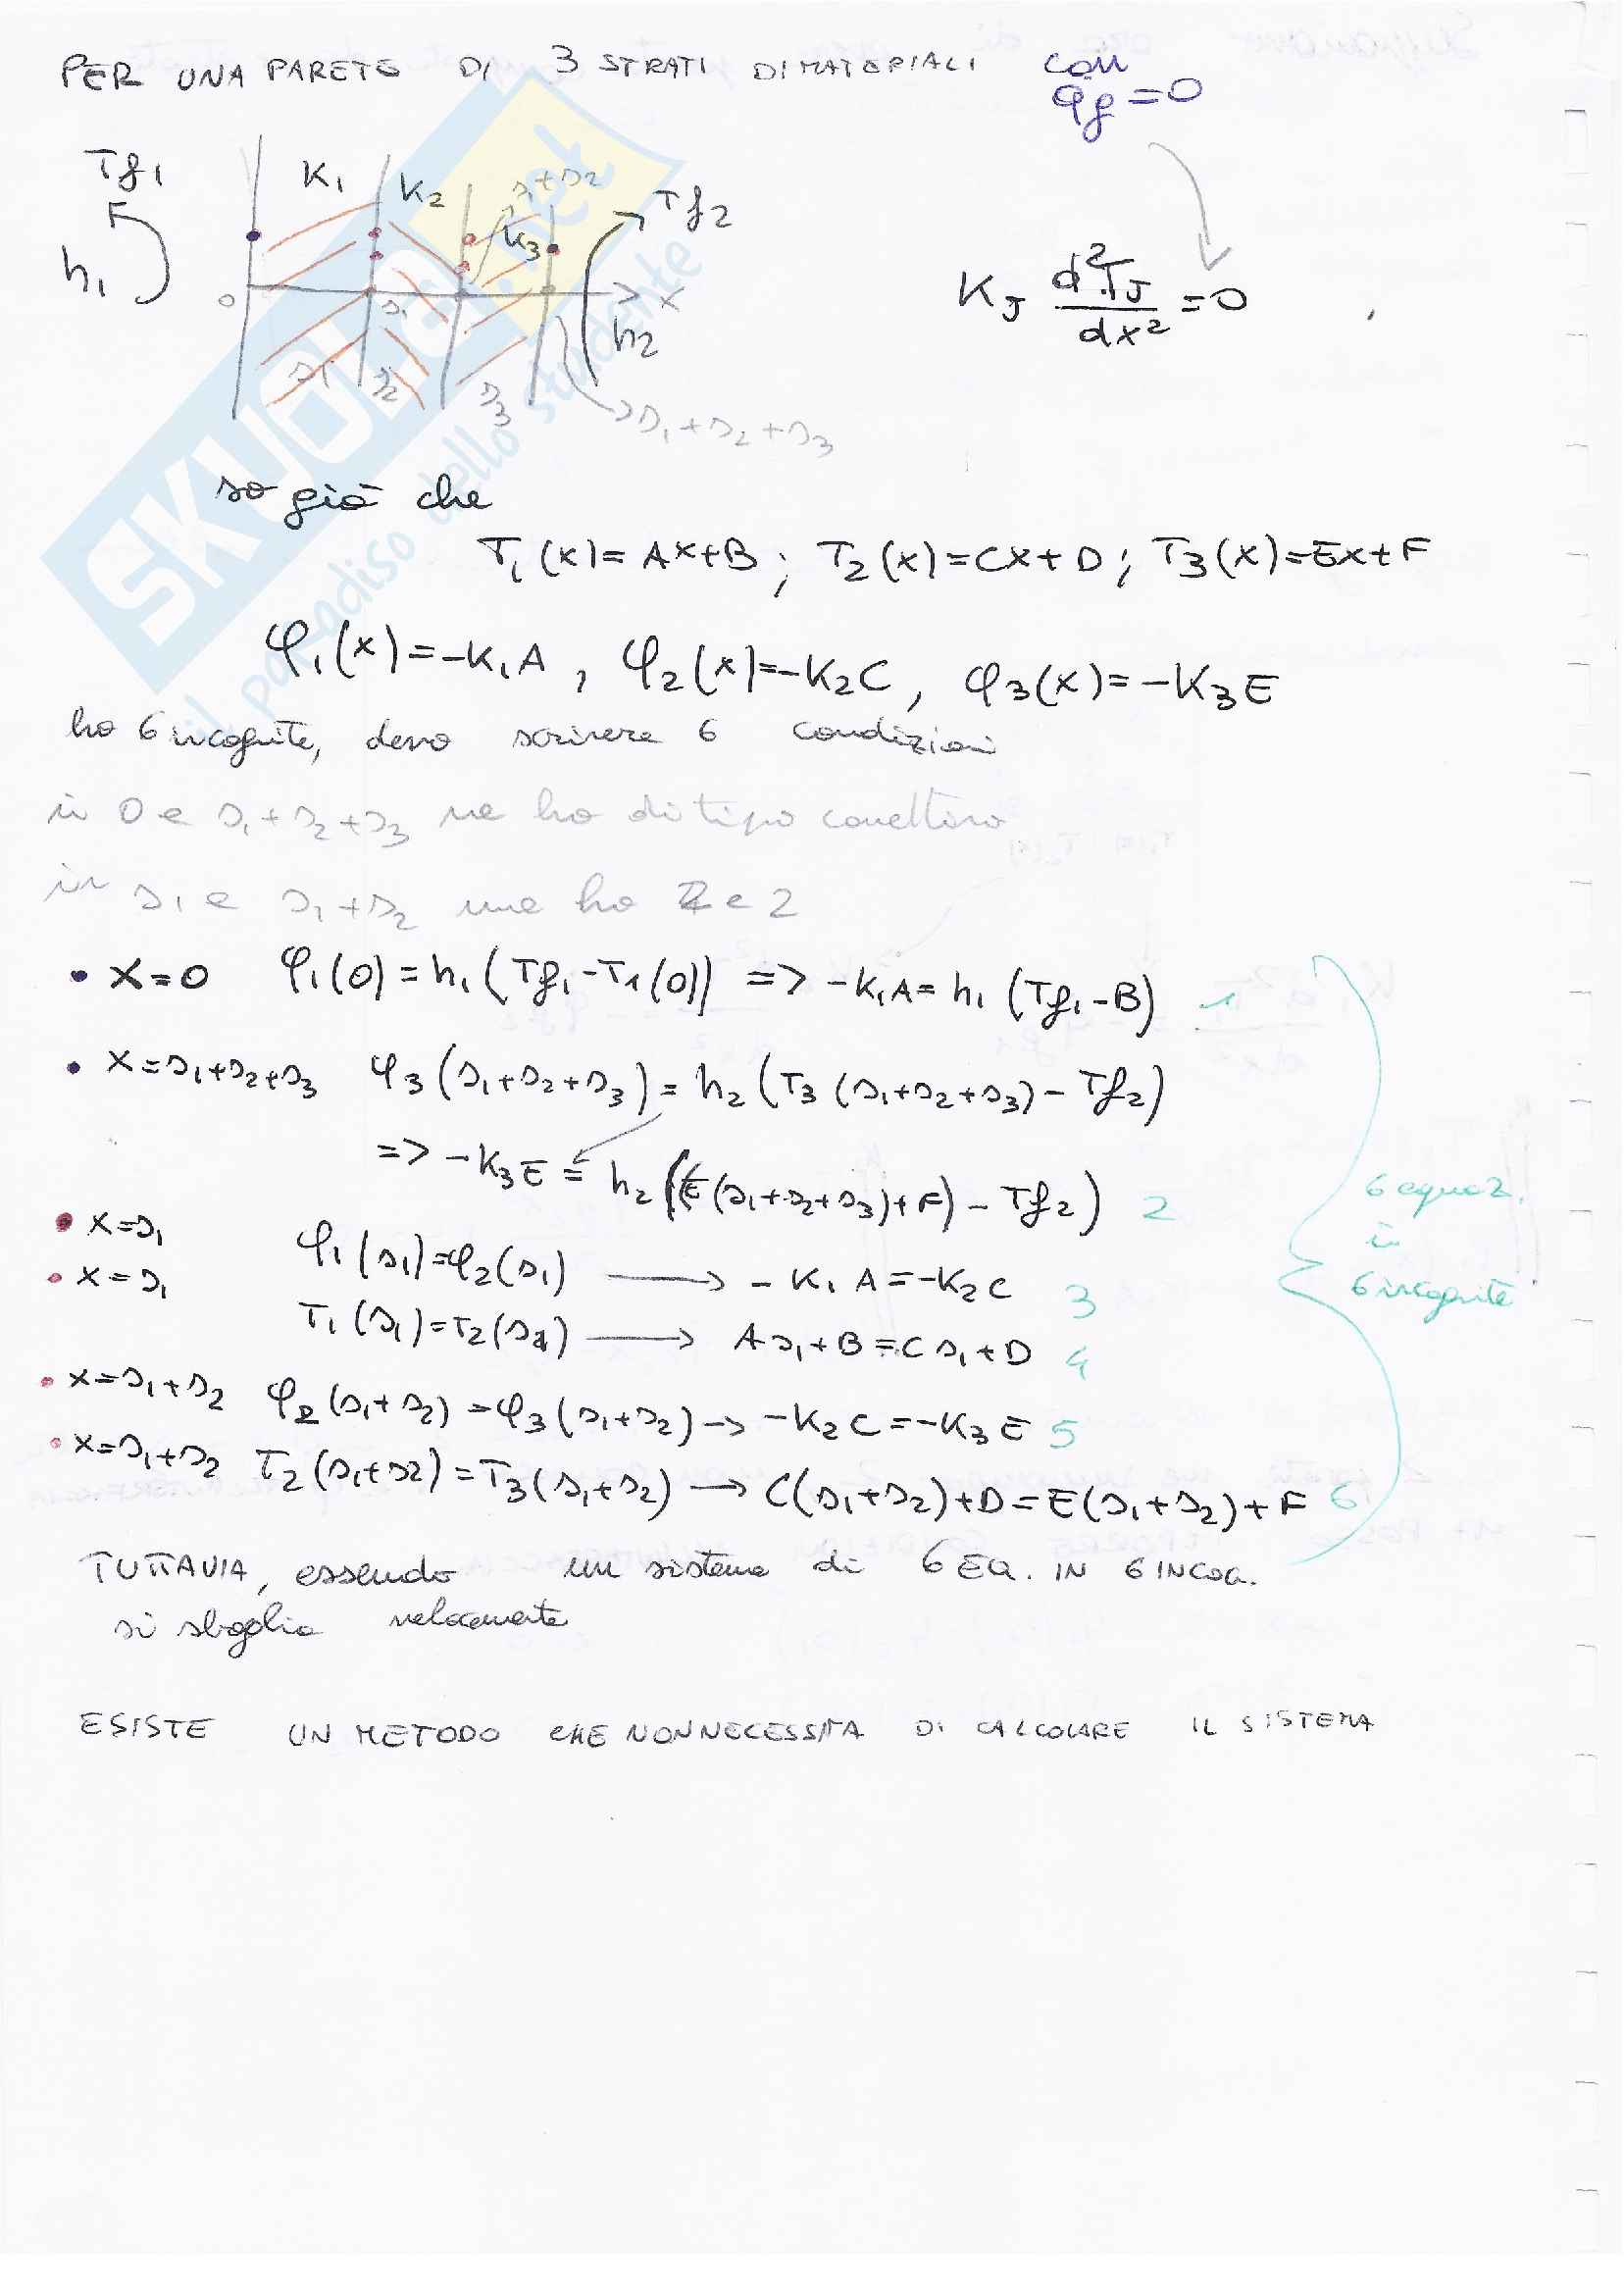 PER UNA PARETE DI 3 STRATI DI MATERIALI con qg=0
Tf1 K1 K2 s1+s2 K3 Tf2
h1 0 s1 x h2
s1 s2 s3 s1+s2+s3
KJ d²TJ/dx² =0
so già che
T1(x)=Ax+B ; T2(x)=Cx+D ; T3(x)=Ex+F
φ1(x)=-K1A , φ2(x)=-K2C, φ3(x)=-K3E
ho 6 incognite, devo scrivere 6 condizioni
in 0 e s1+s2+s3 ne ho di tipo convettivo
in s1 e s1+s2 ne ho 2 e 2
• X=0 φ1(0)=h1(Tf1-T1(0)) => -K1A=h1(Tf1-B) 1
• X=s1+s2+s3 φ3(s1+s2+s3)=h2(T3(s1+s2+s3)-Tf2)
=> -K3E = h2((E(s1+s2+s3)+F)-Tf2) 2
• X=s1 φ1(s1)=φ2(s1) → -K1A=-K2C 3
• X=s1 T1(s1)=T2(s1) → As1+B=Cs1+D 4
• X=s1+s2 φ2(s1+s2)=φ3(s1+s2) → -K2C=-K3E 5
• X=s1+s2 T2(s1+s2)=T3(s1+s2) → C(s1+s2)+D=E(s1+s2)+F 6
6 equaz.
in
6 incognite
TUTTAVIA, essendo un sistema di 6 EQ. IN 6 INCOG.
si sbaglia velocemente
ESISTE UN METODO CHE NON NECESSITA DI CALCOLARE IL SISTEMA
SKUOLA.net
il paradiso dello studente